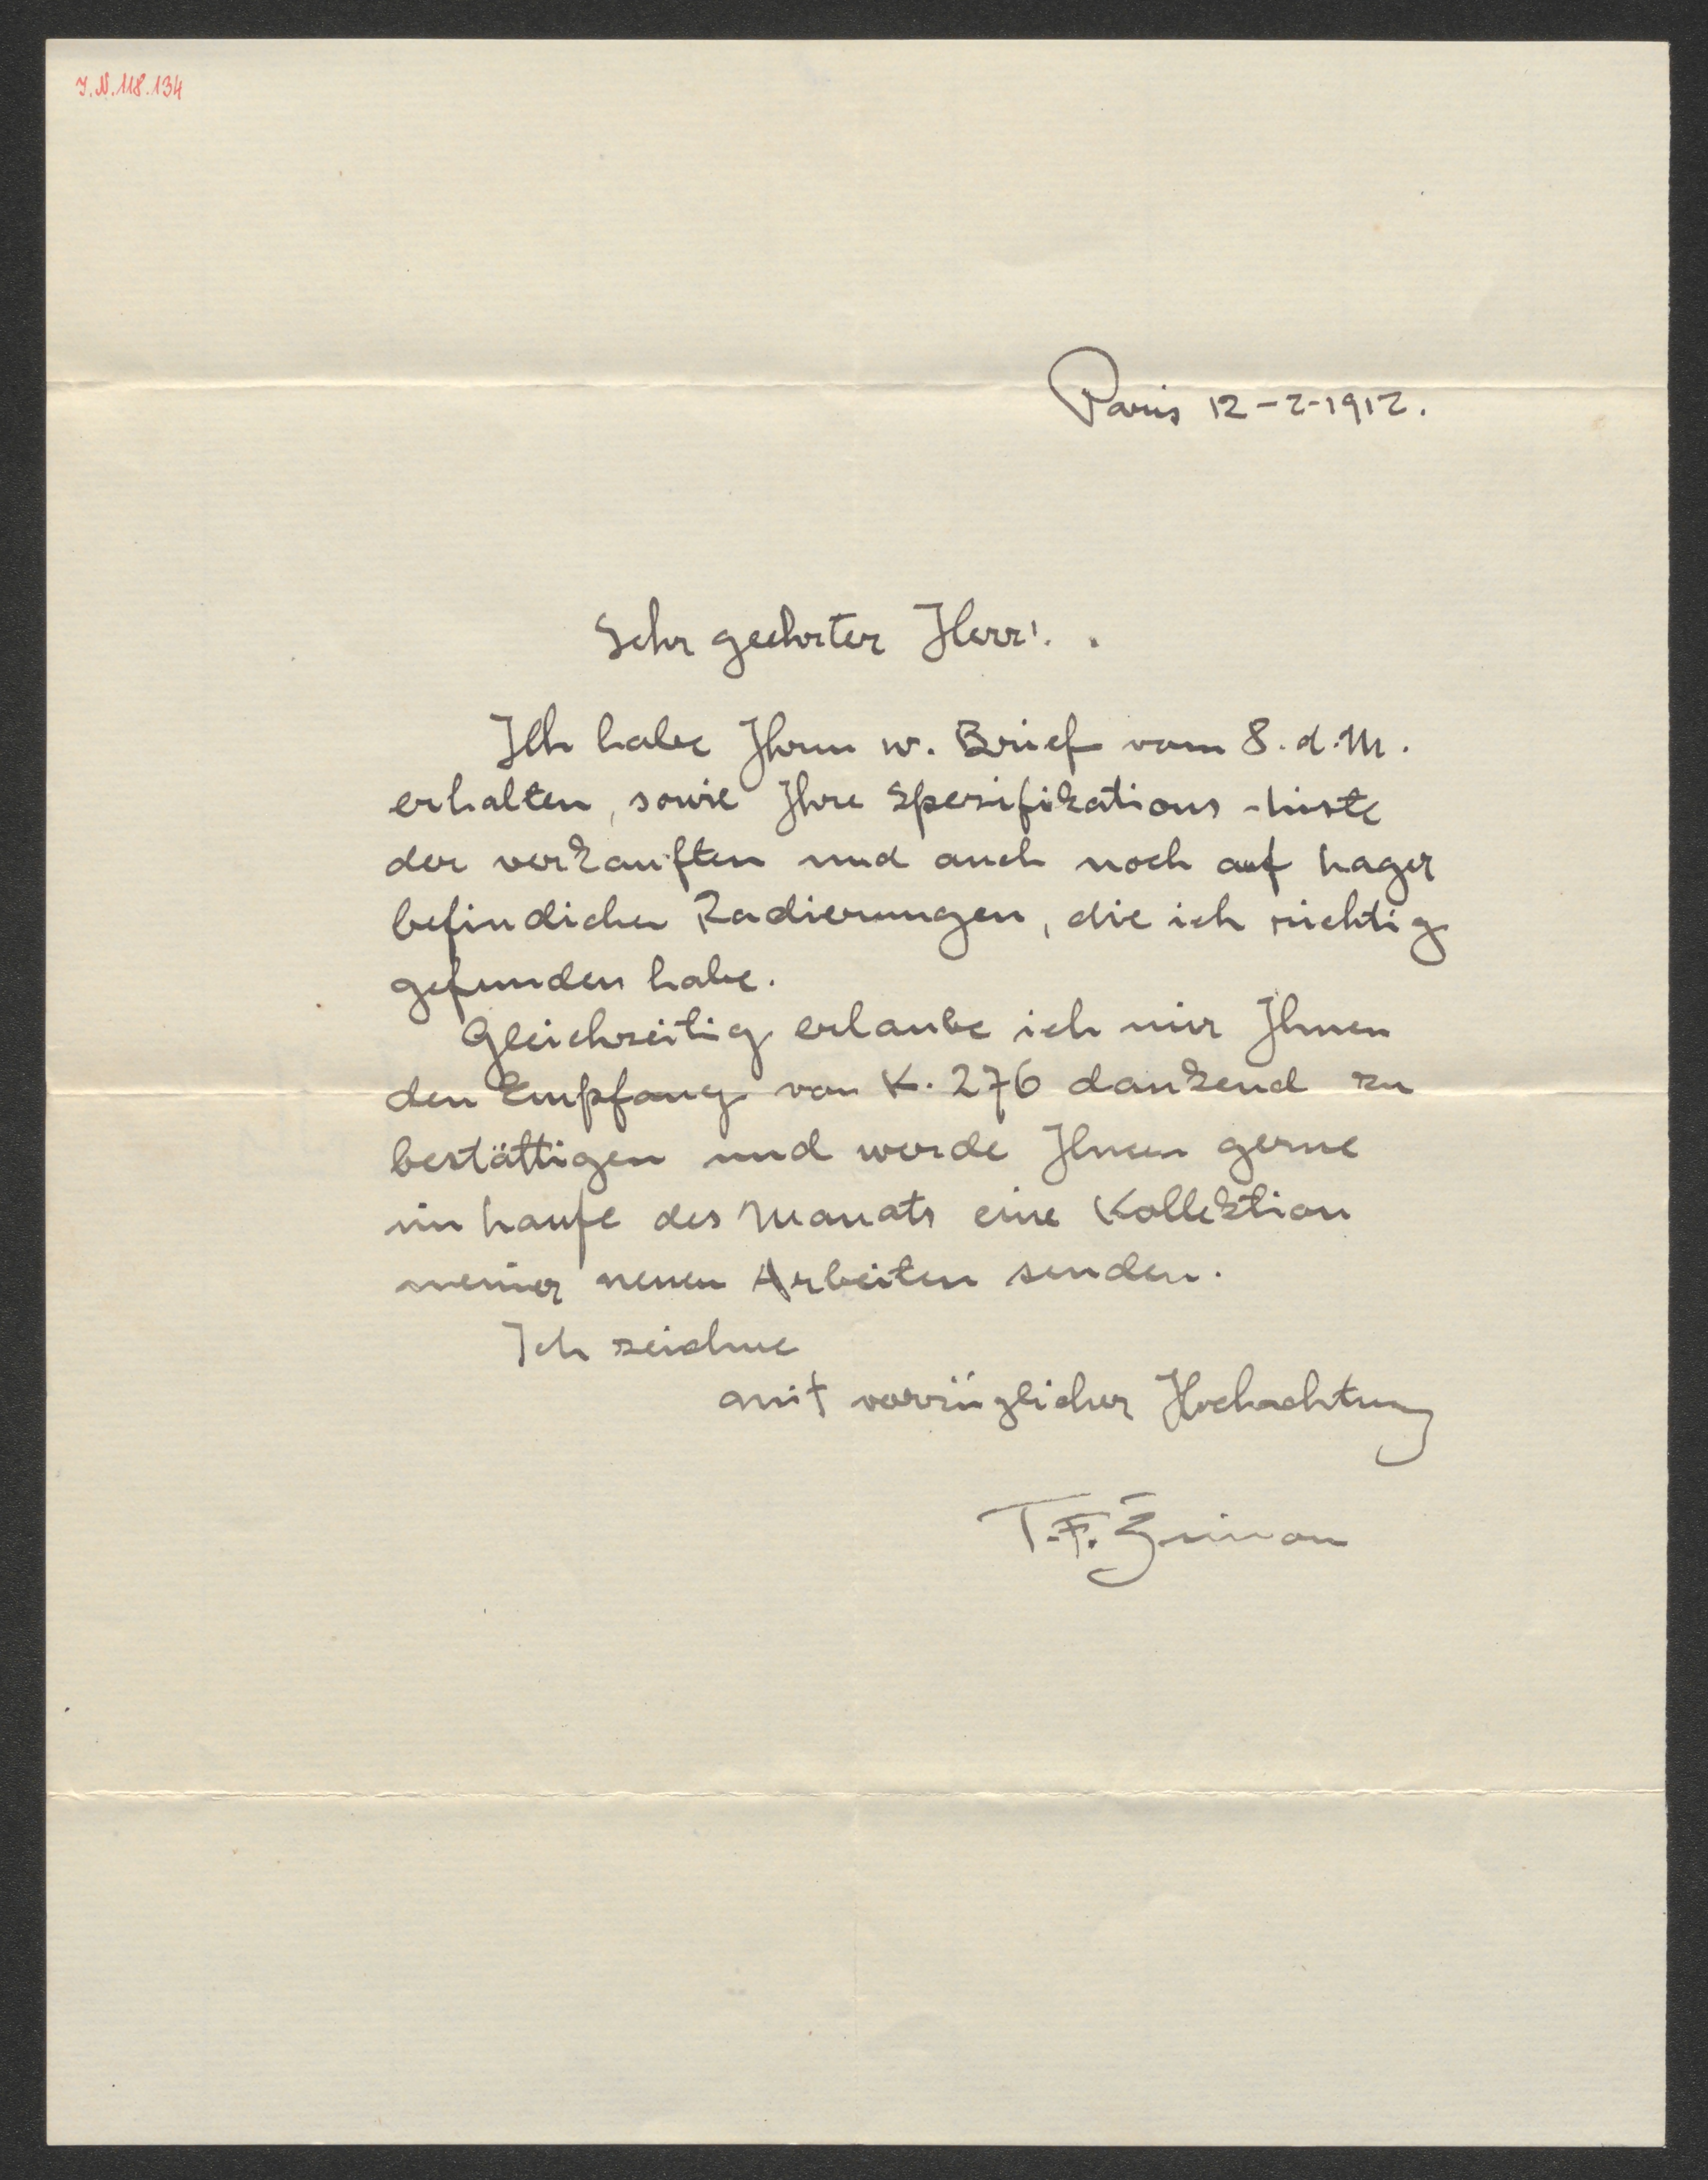 I.N.118.134
Paris 12-2-1912.
Sehr geehrter Herr!
Ich habe Ihren w. Brief vom 8. d. M.
erhalten, sowie Ihre Spezifikations-Liste
der verkauften und auch noch auf Lager
befindichen Radierungen, die ich richtig
gefunden habe.
Gleichzeitig erlaube ich mir Ihnen
den Empfang von K. 276 dankend zu
bestättigen und werde Ihnen gerne
im Laufe des Monats eine Kollektion
meiner neuen Arbeiten senden.
Ich zeichne
mit vorzüglicher Hochachtung
T.F. Šimon